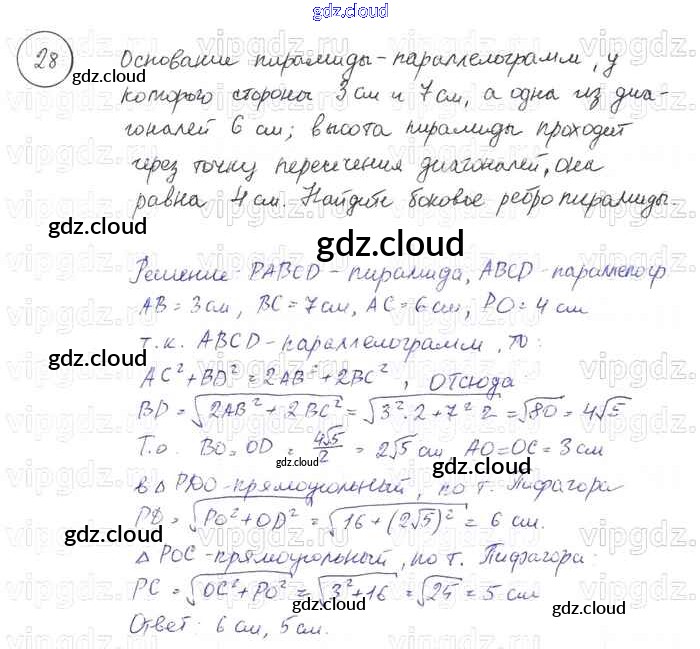 gdz.cloud
28 Основание пирамиды-параллелограмм, у
которого стороны 3 см и 7 см, а одна из диа-
гоналей 6 см; высота пирамиды проходит
через точку пересечения диагоналей, она
равна 4 см. Найдите боковое ребро пирамиды.
gdz.cloud
Решение: PABCD - пирамида, ABCD - параллелогр
AB = 3см, BC = 7см, AC = 6см, PO = 4 см
т.к. ABCD - параллелограмм, то:
AC² + BD² = 2AB² + 2BC², отсюда
BD = √2AB² + 2BC² = √3²·2+7²·2 = √80 = 4√5
Т.о. BO = OD = 4√5/2 = 2√5 см AO=OC = 3 см
в △ PDO - прямоугольный, по т. Пифагора
PD = √PO² + OD² = √16 + (2√5)² = 6 см.
△ POC - прямоугольный, по т. Пифагора:
PC = √OC² + PO² = √3² + 16 = √25 = 5 см
Ответ: 6 см, 5 см.